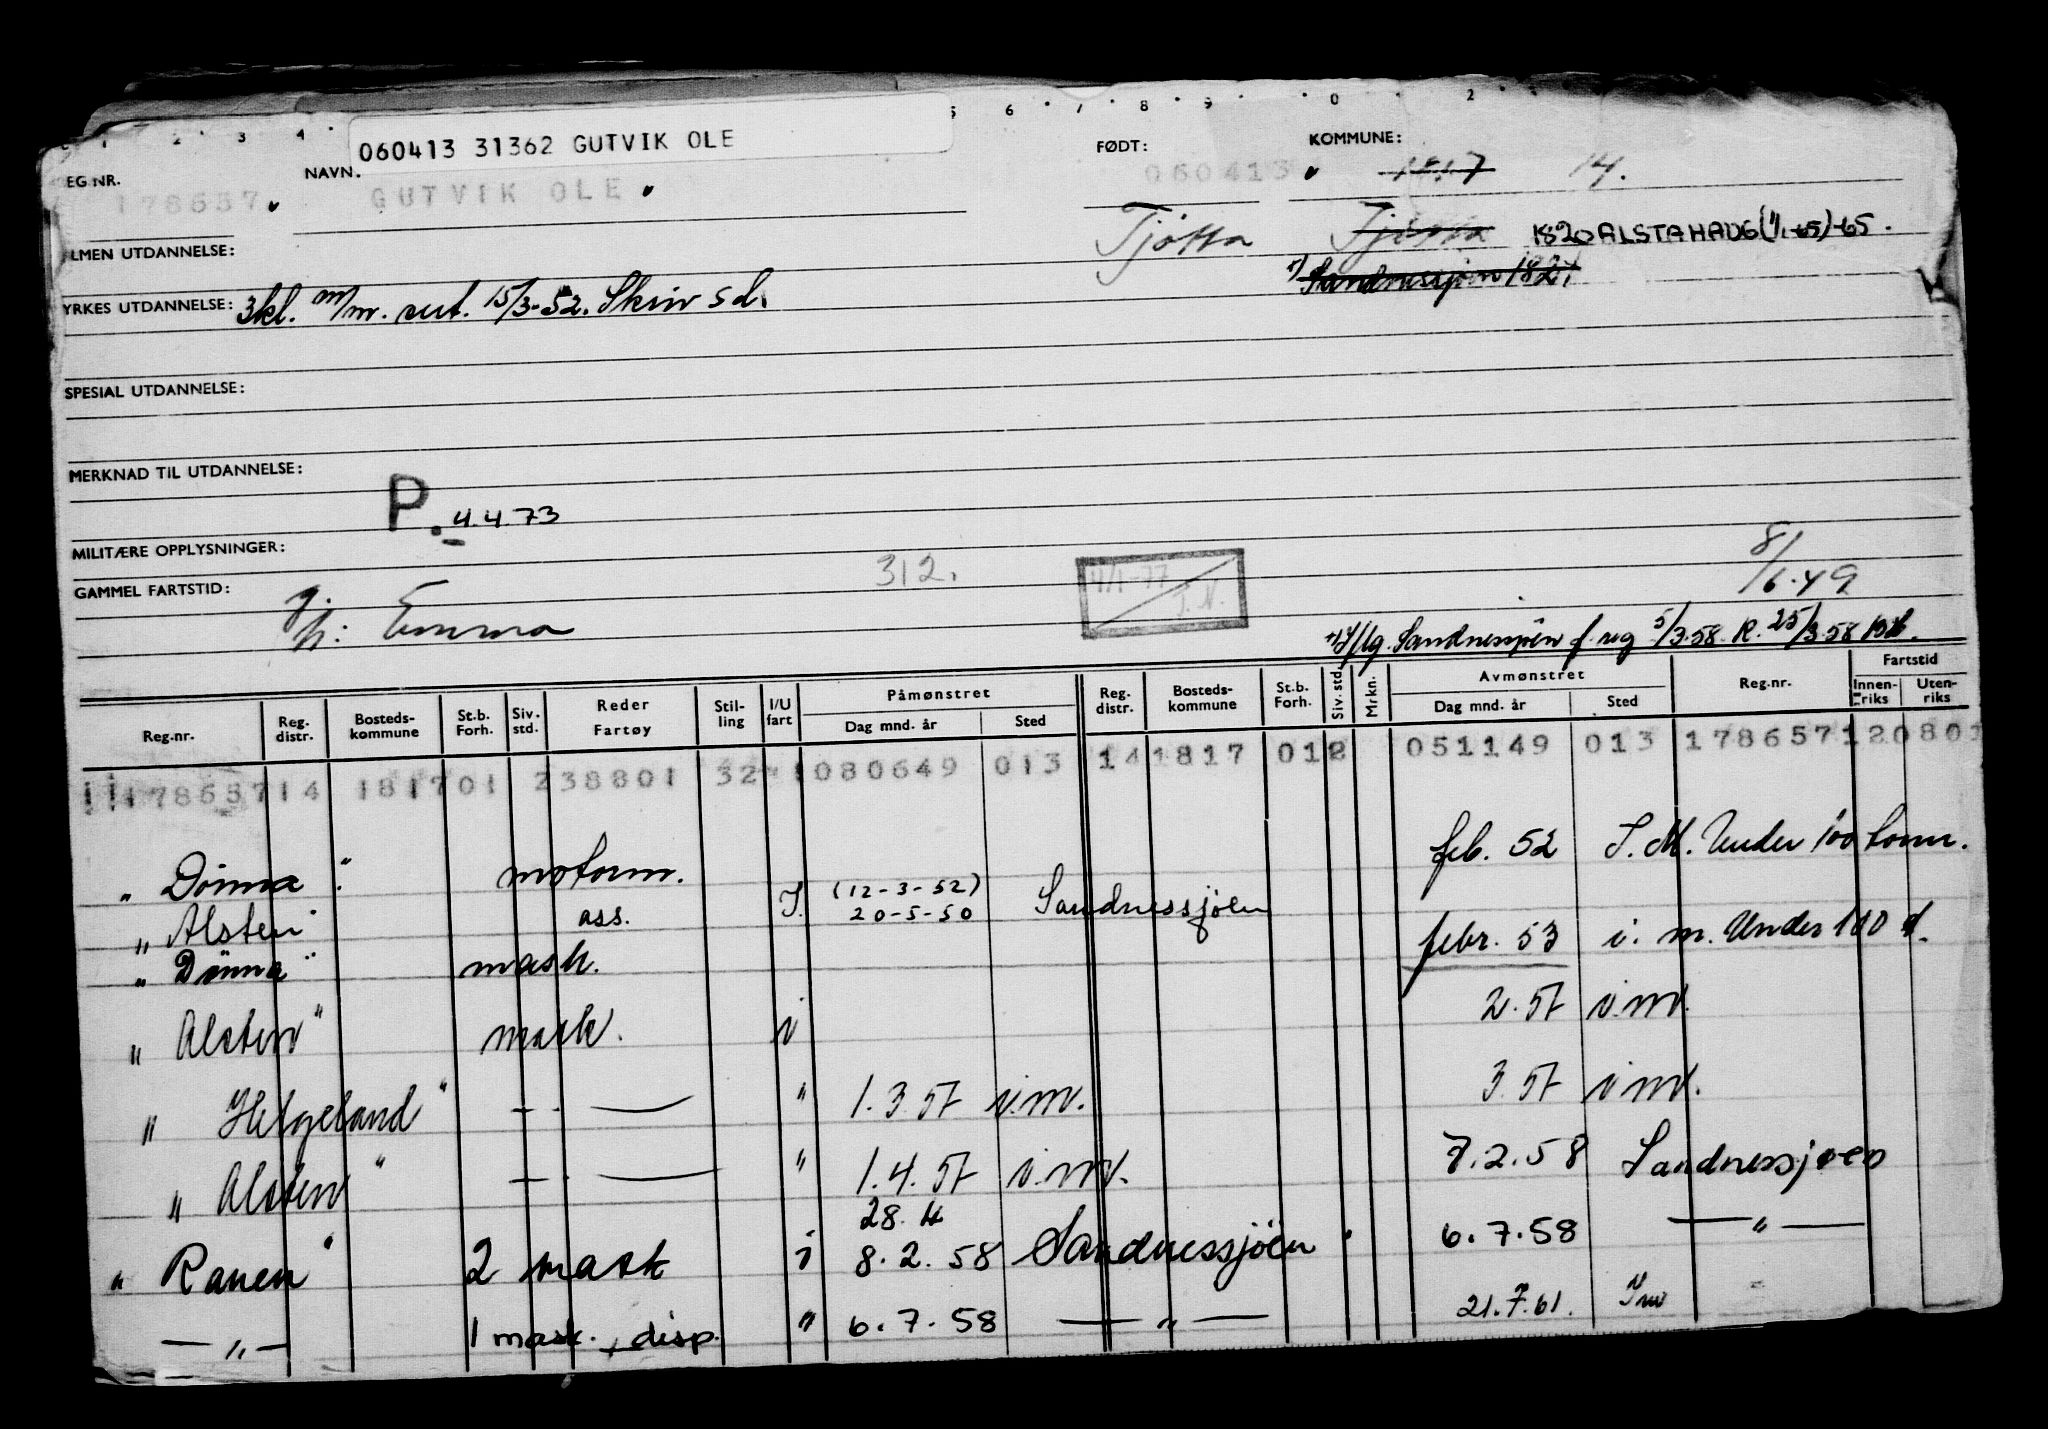 2 3 4 5 6 7 8 9 0 2
060413 31362 GUTVIK OLE
EG.NR. NAVN. FØDT: KOMMUNE:
178657 GUTVIK OLE 060413 1817 14.
LMEN UTDANNELSE: Tjøtta Tjøtta 1820 ALSTAHAUG (1/1-65)-65.
Sandnessjøen 1821
YRKES UTDANNELSE: 3kl. m/m. sert. 15/3-52. Skriv sd.
SPESIAL UTDANNELSE:
MERKNAD TIL UTDANNELSE:
P. 4.4.73
MILITÆRE OPPLYSNINGER:
GAMMEL FARTSTID: 312. 4/1-77 8/6.49
g.h: Emma
f/lg. Sandnessjøen f. reg 5/3.58. R. 25/3.58
Reg.nr. Reg. distr. Bosteds-kommune St.b. Forh. Siv. std. Reder Fartøy Stil-ling I/U fart Påmønstret Dag mnd. år Sted Reg. distr. Bosteds-kommune St.b. Forh. Siv. std. Mrkn. Avmønstret Dag mnd. år Sted Reg.nr. Fartstid Innen-riks Uten-riks
178657 14 1817 01 238801 32 1 080649 013 14 1817 01 2 051149 013 178657 1 20801
" Dönna " motorm. feb. 52 I. M. Under 100 tonn.
" Alsten " ass. I. (12-3-52) 20-5-50 Sandnessjöen
" Dönna " mask. febr. 53 i. m. Under 100 t.
" Alsten " mask. i 2.57 i.m.
" Helgeland " — " — " 1.3 57 i.m. 3.57 i.m.
" Alsten " — " — " 1.4.57 i.m. 7.2.58 Sandnessjøen
28.4
" Ranen " 2 mask i 8.2.58 Sandnessjöen 6.7.58 — " —
— " — 1 mask. disp. " 6.7.58 — " — 21.7.61.